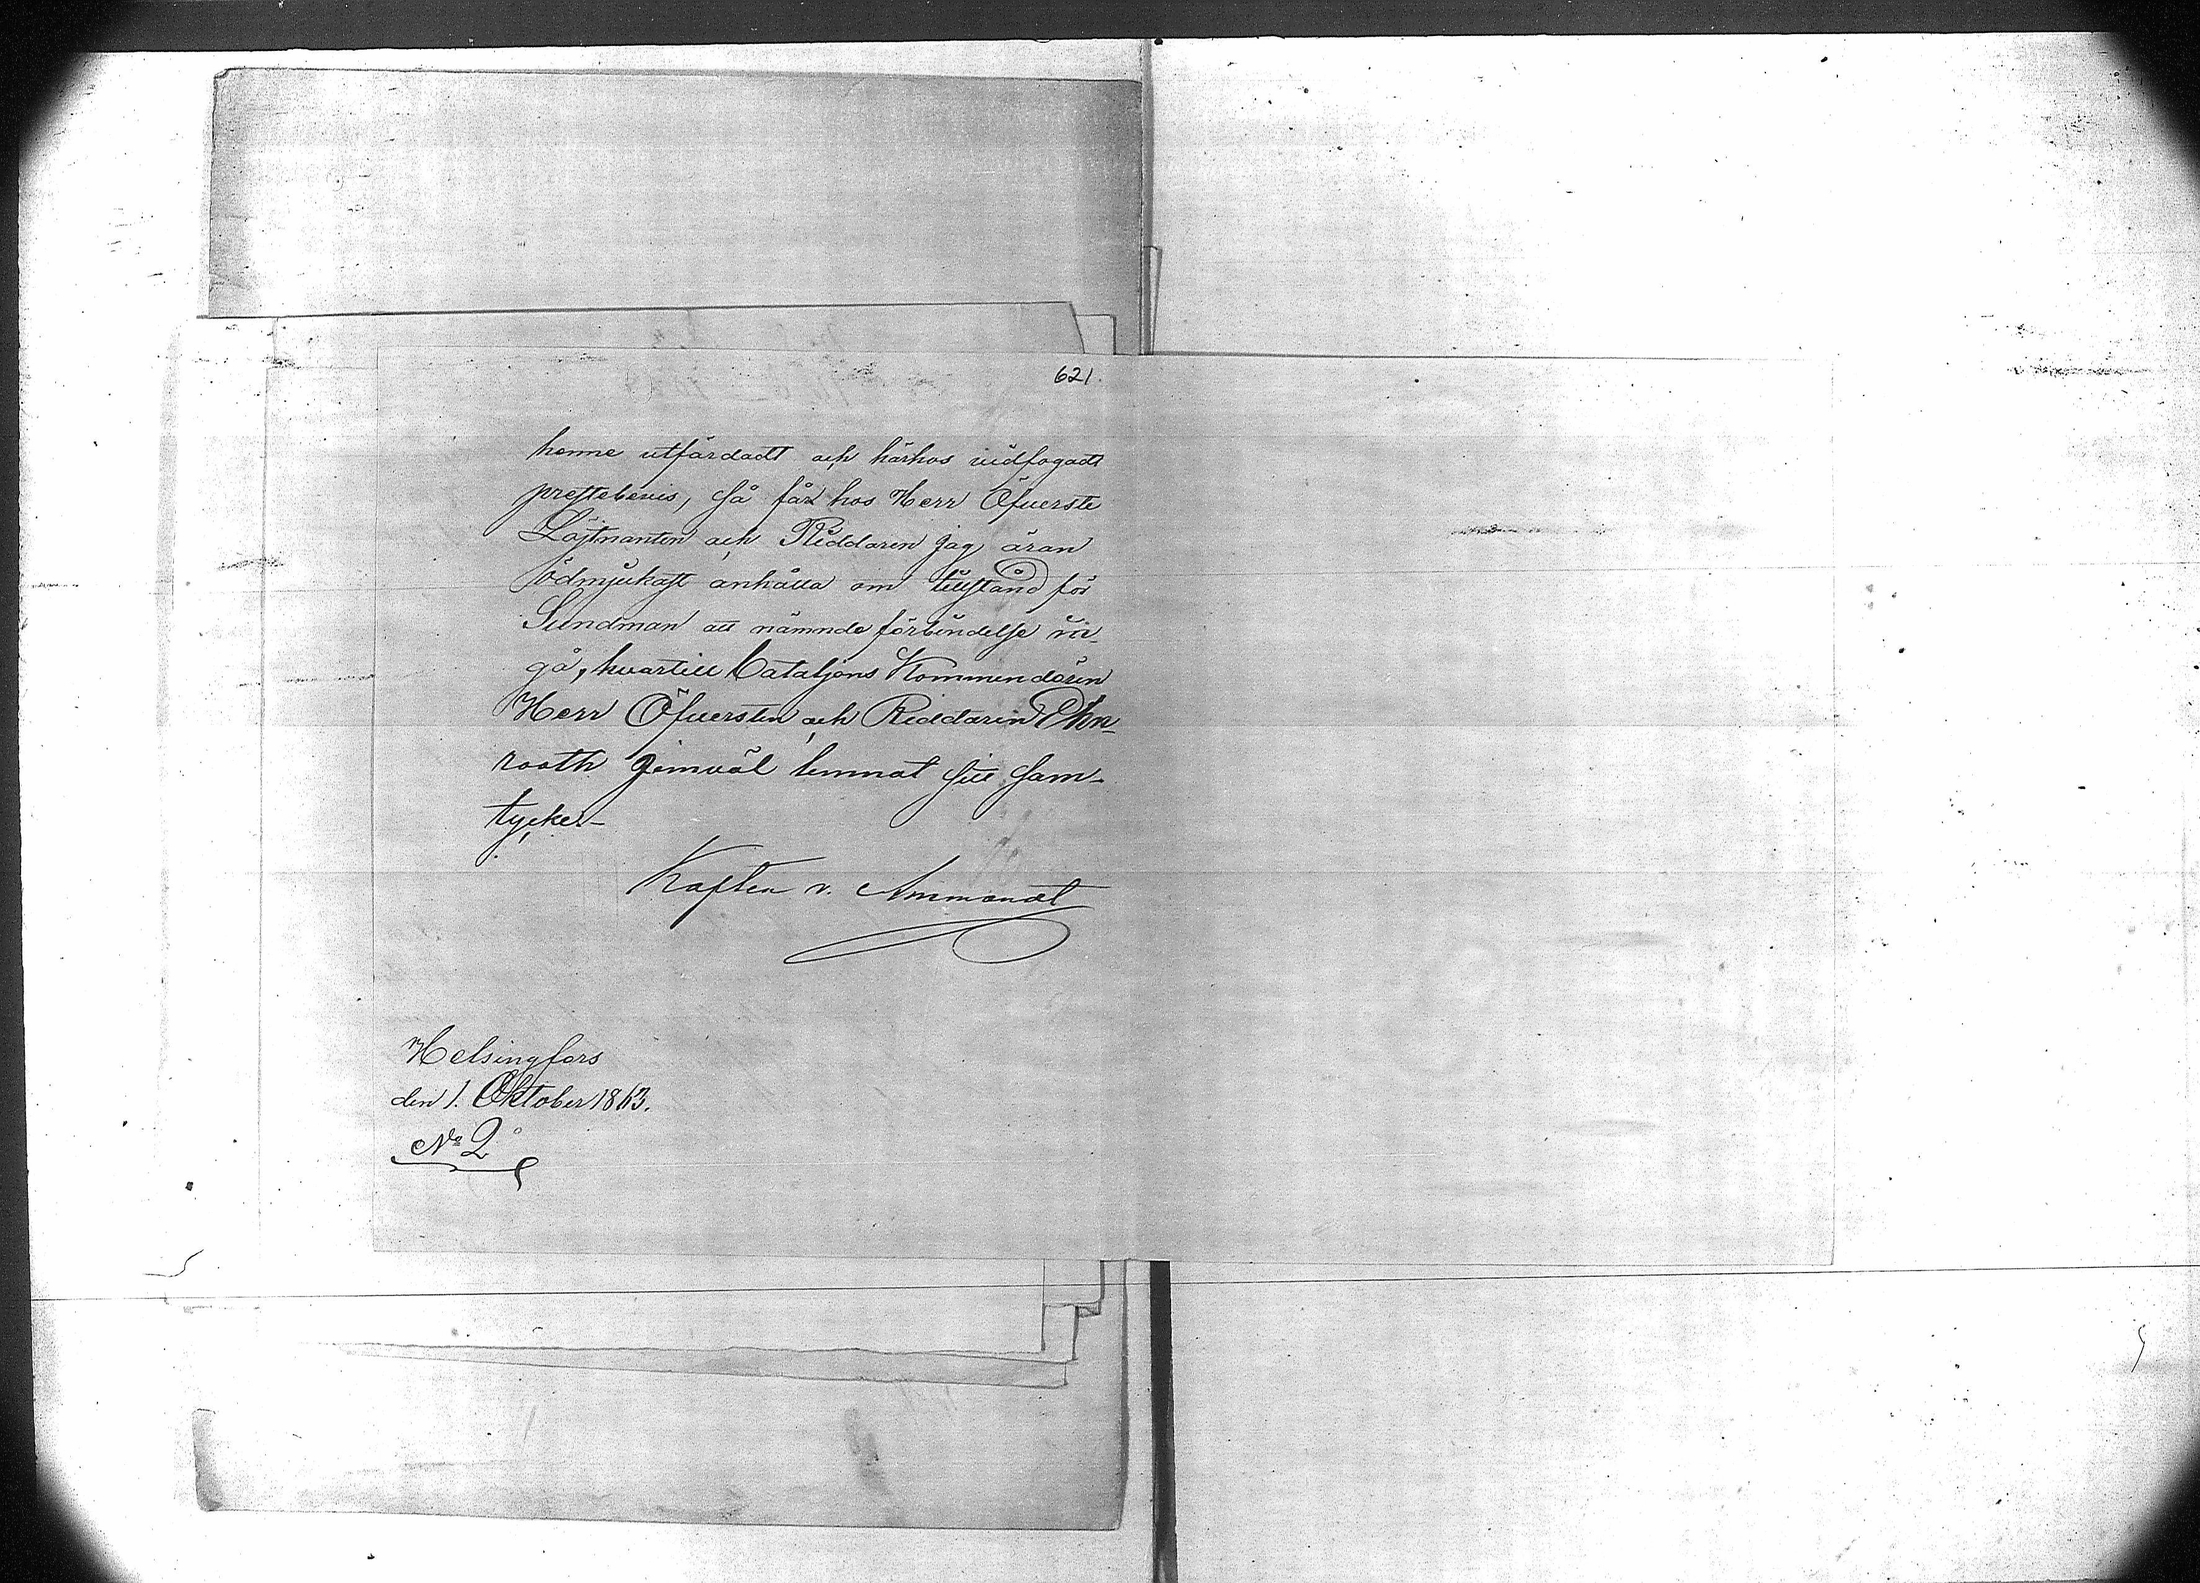 621.
henne utfärdadt och härhos vidfogadt
prestebevis, så får hos Herr Öfverste
Löjtnanten och Riddaren jag äran
ödmjukast anhålla om tillstånd för
Sundman att nämnde förbindelse in-
gå, hvartill Bataljons Kommendören
Herr Öfversten och Riddaren Ehrn-
rooth jemväl lemnat sitt sam-
tycke.-
Kapten v. Ammondt
Helsingfors
den 1. Oktober 1863.
No 2